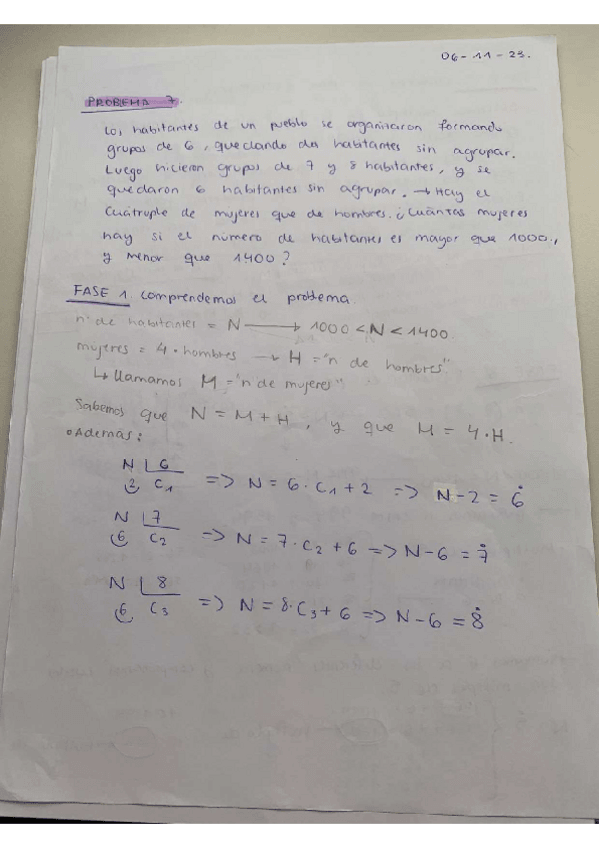 06-11-23.
PROBLEMA 7.
Los habitantes de un pueblo se organizaron formando
grupos de 6, quedando dos habitantes sin agrupar.
Luego hicieron grupos de 7 y 8 habitantes, y se
quedaron 6 habitantes sin agrupar. → Hay el
cuátruple de mujeres que de hombres. ¿Cuántas mujeres
hay si el número de habitantes es mayor que 1000,
y menor que 1400?
FASE 1. Comprendemos el problema.
nº de habitantes = N → 1000 < N < 1400.
mujeres = 4 · hombres → H = "n de hombres".
↳ Llamamos M = "n de mujeres"
Sabemos que N = M + H, y que M = 4·H.
∘Además:
N 6
2 C1 => N = 6·C1 + 2 => N-2 = 6̇
N 7
6 C2 => N = 7·C2 + 6 => N-6 = 7̇
N 8
6 C3 => N = 8·C3 + 6 => N-6 = 8̇